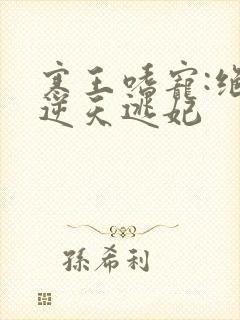 寒王嗜寵:
逆天逃妃
孫希利